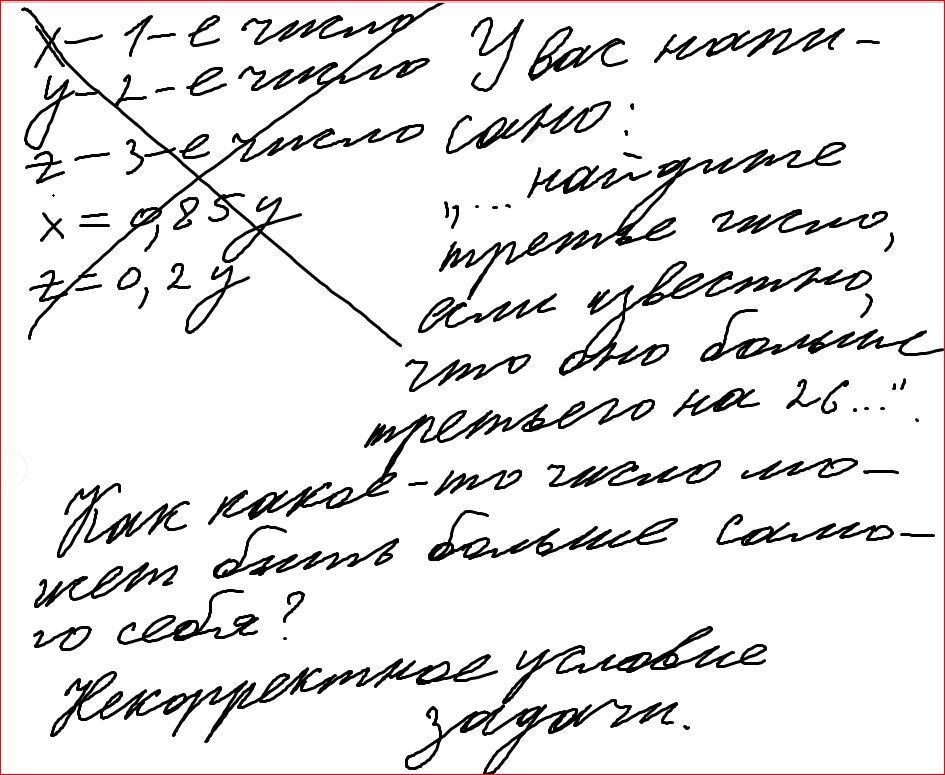 x – 1-е число
y – 2-е число
z – 3-е число
x = 0,85y
z = 0,2y
У вас напи-
сано:
„...найдите
третье число,
если известно,
что оно больше
третьего на 26...".
Как какое-то число мо-
жет быть больше само-
го себя?
Некорректное условие
задачи.